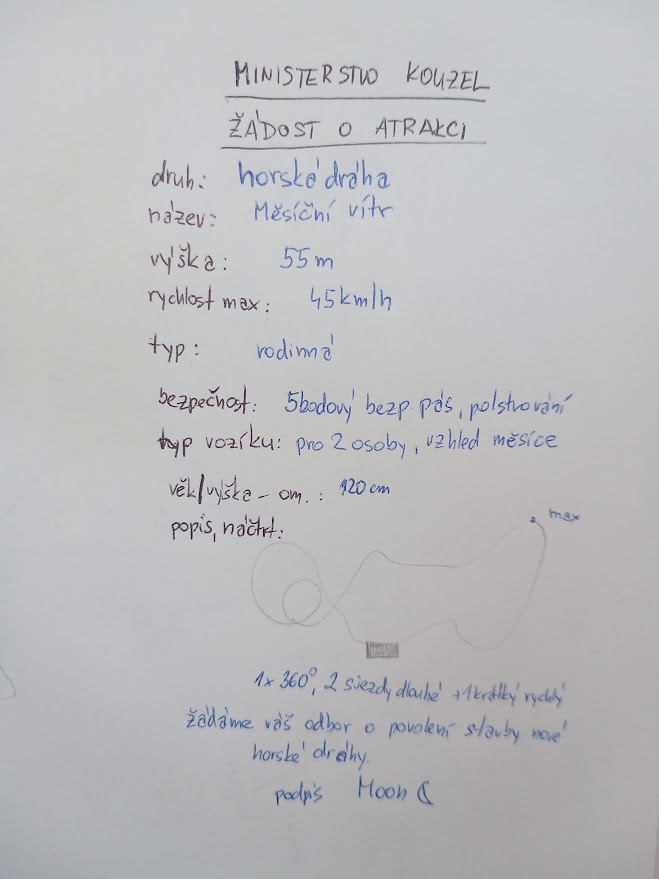 MINISTERSTVO KOUZEL
ŽÁDOST O ATRAKCI
druh: horská dráha
název: Měsíční vítr
výška: 55 m
rychlost max: 45 km/h
typ: rodinná
bezpečnost: 5bodový bezp. pás, polstrování
typ vozíku: pro 2 osoby, vzhled měsíce
věk/výška - om.: 120 cm
popis, náčrt:
max
1x 360°, 2 sjezdy dlouhé + 1 krátký rychlý
žádáme váš odbor o povolení stavby nové
horské dráhy.
podpis Moon